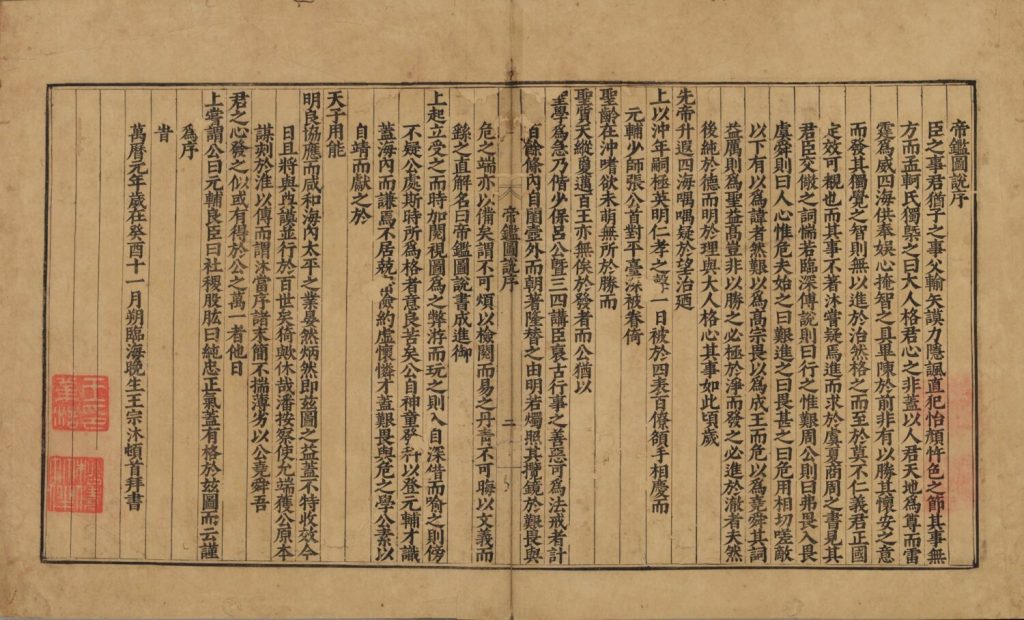 帝鑑圖說序
臣之事君猶子之事父輸矢謨力隱諷直犯怡顏忤色之節其事無
方而孟軻氏獨槩之曰大人格君心之非蓋以人君天地為尊而雷
霆為威四海供奉娛心掩智之具畢陳於前非有以勝其懷安之意
而發其獨覺之智則無以進於治然格之而至於莫不仁義君正國
定效可覩也而其事不著沐嘗疑焉進而求於虞夏商周之書見其
君臣交儆之詞惴若臨深傅說則曰行之惟艱周公則曰弗畏入畏
虞舜則曰人心惟危夫始之曰艱進之曰畏甚之曰危用相切嗟敵
以下有以為諱者然艱以為高宗畏以為成王而危以為堯舜其詞
益厲則為聖益高豈非以勝之必極於淨而發之必進於澈者夫然
後純於德而明於理與大人格心其事如此頃歲
先帝升遐四海喁喁疑於望治廼
上以沖年嗣極英明仁孝之 一日被於四表百僚頟手相慶而
元輔少師張公首對平臺深被眷倚
聖齡在沖嗜欲未萌無所於勝而
聖質天縱敻邁百王亦無俟於發者而公猶以
聖學為急乃偕少保呂公曁三四講臣裒古行事之善惡可為法戒者計
百餘條內自閨壼外而朝著隆替之由明若燭照其攬鏡於艱畏與
帝鑑圖說序
二
危之端亦以備矣謂不可煩以檢閱而易之丹靑不可晦以文義而
錄之直解名曰帝鑑圖說書成進御
上起立受之而時加閱視圖為之弊游而玩之則入自深借而喻之則傍
不疑公處斯時所為格者意良苦矣公自神童發科以登元輔才識
蓋海內而謙焉不居兢 儉約虛懷憐才蓋艱畏與危之學公素以
自靖而獻之於
天子用能
明良協應而咸和海內太平之業㫤然炳然即茲圖之益蓋不特收效今
日且將與典謨並行於百世矣猗歟休哉潘按察使允端獲公原本
謀刻於淮以傳而謂沐當序諸末簡不揣薄劣以公堯舜吾
君之心發之似或有得於公之萬一者他日
上嘗謂公曰元輔良臣曰社稷股肱曰純忠正氣蓋有格於茲圖而云謹
為序
旹
萬曆元年歲在癸酉十一月朔臨海晚生王宗沐頓首拜書